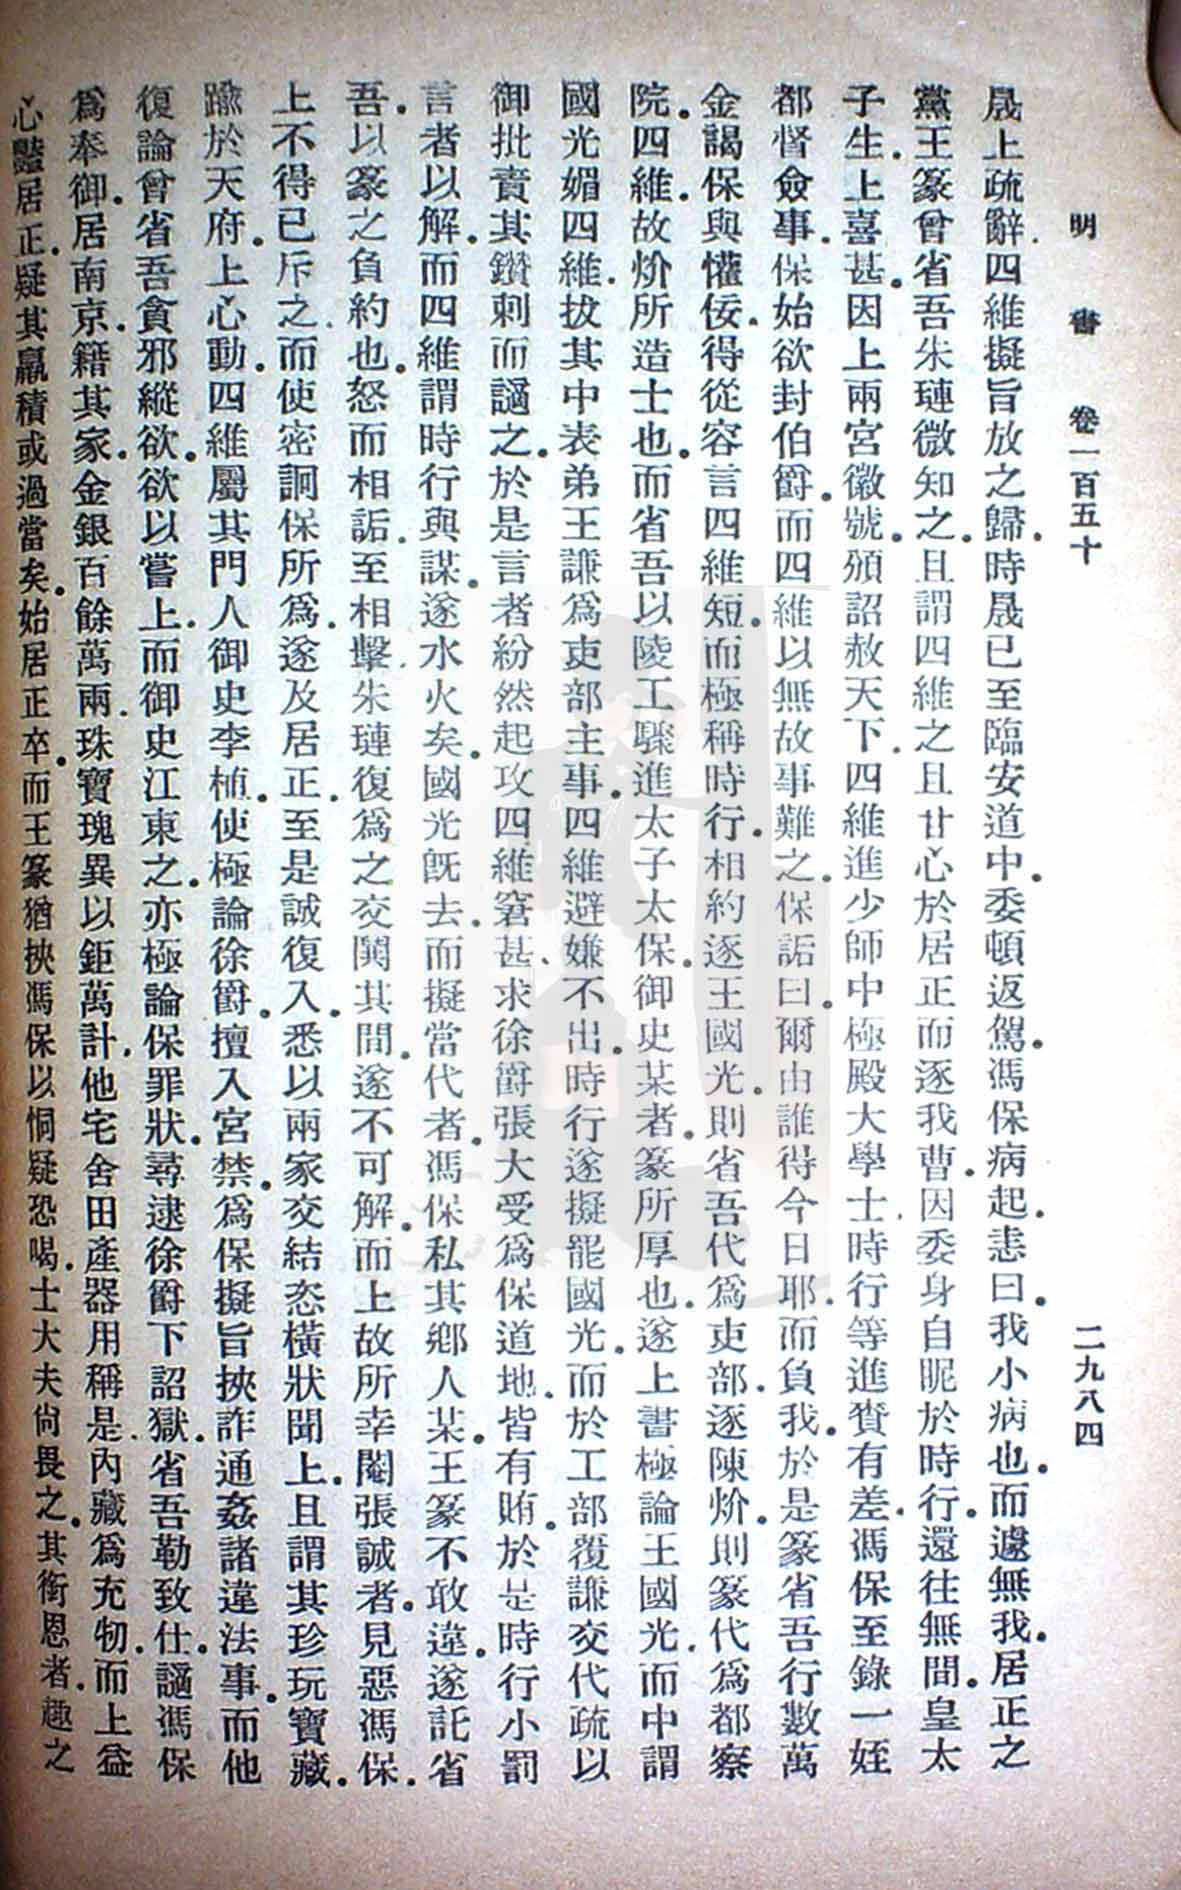 明書 卷一百五十 二九八四
晟上疏辭.四維擬旨放之歸.時晟已至臨安道中.委頓返駕.馮保病起.恚曰.我小病也.而遽無我.居正之
黨王篆曾省吾朱璉微知之.且謂四維之且甘心於居正而逐我曹.因委身自昵於時行.還往無間.皇太
子生.上喜甚.因上兩宮徽號.頒詔赦天下.四維進少師中極殿大學士.時行等進賚有差.馮保至錄一姪
都督僉事.保始欲封伯爵.而四維以無故事難之.保詬曰.爾由誰得今日耶.而負我.於是篆省吾行數萬
金謁保與懽佞.得從容言四維短.而極稱時行.相約逐王國光.則省吾代為吏部.逐陳炌.則篆代為都察
院.四維.故炌所造士也.而省吾以陵工驟進太子太保.御史某者.篆所厚也.遂上書極論王國光.而中謂
國光媚四維.拔其中表弟王謙為吏部主事.四維避嫌不出.時行遂擬罷國光.而於工部覆謙交代疏以
御批責其鑽刺而謫之.於是言者紛然起攻四維.窘甚.求徐爵張大受為保道地.皆有賄.於是時行小罰
言者以解.而四維謂時行與謀.遂水火矣.國光既去.而擬當代者.馮保私其鄉人某.王篆不敢違.遂託省
吾.以篆之負約也.怒而相詬.至相擊.朱璉復為之交鬩其間.遂不可解.而上故所幸閹張誠者.見惡馮保.
上不得已斥之.而使密詗保所為.遂及居正.至是誠復入.悉以兩家交結恣橫狀聞上.且謂其珍玩寶藏.
踰於天府.上心動.四維屬其門人御史李植.使極論徐爵.擅入宮禁.為保擬旨挾詐通姦諸違法事.而他
復論曾省吾貪邪縱欲.欲以嘗上.而御史江東之.亦極論保罪狀.尋逮徐爵下詔獄.省吾勒致仕.謫馮保
為奉御.居南京.籍其家.金銀百餘萬兩.珠寶瑰異以鉅萬計.他宅舍田產器用稱是.內藏為充牣.而上益
心豔居正.疑其羸積或過當矣.始居正卒.而王篆猶挾馮保以恫疑恐喝.士大夫尚畏之.其銜恩者.趣之